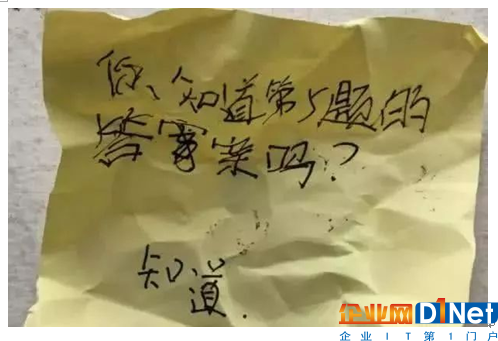 你知道第5题的
答案吗?
知道.
企业网D1Net
企业IT第1门户